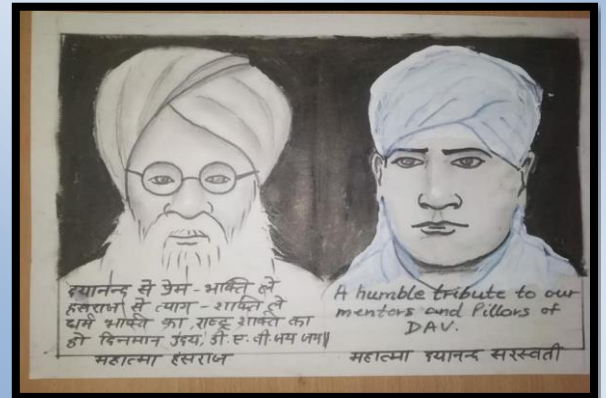 दयानन्द से प्रेम - भाक्ति ले
हंसराज से त्याग - शाक्ति ले
धर्म भाक्ति का, राष्ट्र शाक्ति का
हो दिनमान उदय, डी. ए. वी जय जय॥
महात्मा हंसराज
A humble tribute to our
mentors and Pillors of
DAV.
महात्मा दयानन्द सरस्वती